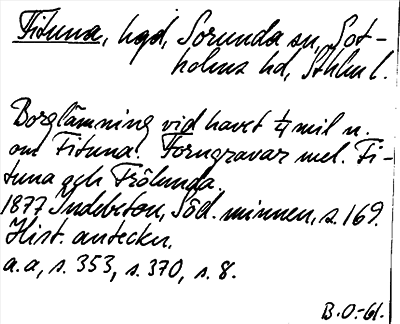 Fituna, hgd, Sorunda sn, Sot-
holms hd, Sthlm l.
Borglämning vid havet 1/4 mil n.
om Fituna. Forngravar mel. Fi-
tuna och Frölunda.
1877 Indebetou, Söd. minnen, s. 169.
Hist. anteckn.
a.a, s. 353, s. 370, s. 8.
B.O.-61.